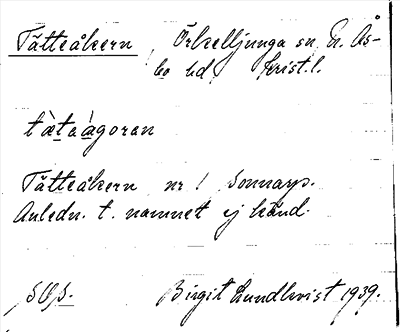 Tätteåkern, Örkelljunga sn, N. Ås-
bo hd Krist. l.
tàtaågoran
Tätteåkern nr 1 Sonnarps.
Anledn. t. namnet ej känd.
Birgit Lundkvist 1939.